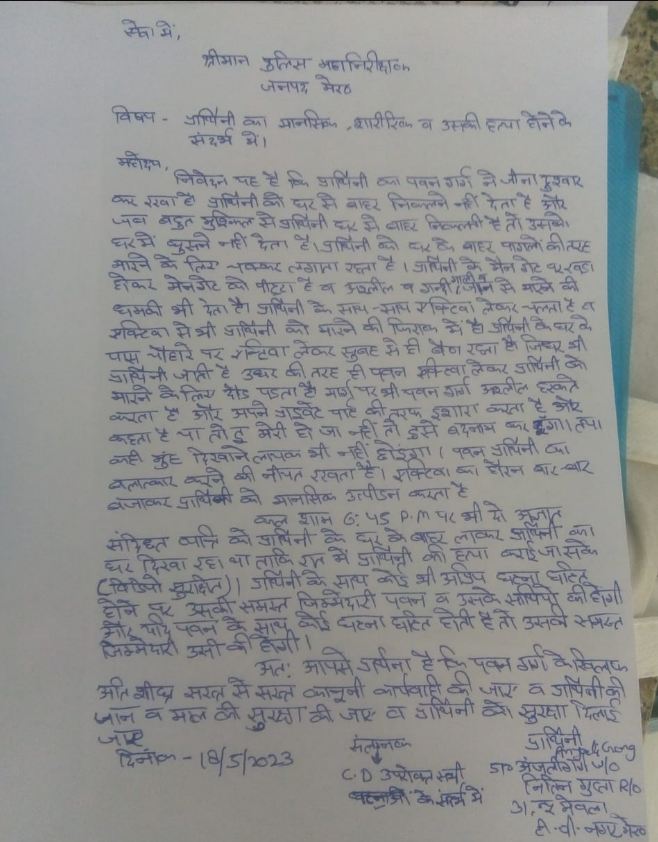 सेवा में,
श्रीमान पुलिस महानिरीक्षक
जनपद मेरठ
विषय - प्रार्थिनी का मानसिक, शारीरिक व उसकी हत्या होने के
संदर्भ में।
महोदय,
निवेदन यह है कि प्रार्थिनी का पवन गर्ग ने जीना दुश्वार
कर रखा है प्रार्थिनी को घर से बाहर निकलने नहीं देता है और
जब बहुत मुश्किल से प्रार्थिनी घर से बाहर निकलती है तो उसको
घर में घुसने नहीं देता है। प्रार्थिनी को घर के बाहर पागलों की तरह
मारने के लिए चक्कर लगाता रहता है। प्रार्थिनी के मेन गेट पर खड़ा
होकर मेनगेट को पीटता है व अश्लील व गन्दी गाली व जान से मारने की
धमकी भी देता है। प्रार्थिनी के साथ-साथ एक्टिवा लेकर चलता है व
एक्टिवा से भी प्रार्थिनी को मारने की फिराक में है। प्रार्थिनी के घर के
पास चौहारे पर एक्टिवा लेकर सुबह से ही बैठा रहता है जिधर भी
प्रार्थिनी जाती है उधर की तरफ ही पवन एक्टिवा लेकर प्रार्थिनी को
मारने के लिए दौड़ पड़ता है मार्ग पर भी पवन गर्ग अश्लील हरकतें
करता है और अपने प्राइवेट पार्ट की तरफ इशारा करता है और
कहता है या तो तू मेरी हो जा नहीं तो तुझे बदनाम कर दूंगा। तथा
कहीं मुंह दिखाने लायक भी नहीं छोडूंगा। पवन प्रार्थिनी का
बलात्कार करने की नीयत रखता है। एक्टिवा का हॉरन बार-बार
बजाकर प्रार्थिनी को मानसिक उत्पीडन करता है
कल शाम 6:45 P.M पर भी दो अज्ञात
संदिग्ध व्यक्ति को प्रार्थिनी के घर के बाहर लाकर प्रार्थिनी का
घर दिखा रहा था ताकि रात में प्रार्थिनी की हत्या कराई जा सके
(विडियो सुरक्षित)। प्रार्थिनी के साथ कोई भी अप्रिय घटना घटित
होने पर उसकी समस्त जिम्मेदारी पवन व उसके साथियों की होगी
और यदि पवन के साथ कोई घटना घटित होती है तो उसकी समस्त
जिम्मेदारी उसी की होगी।
अतः आपसे प्रार्थना है कि पवन गर्ग के खिलाफ
अति शीघ्र सख्त से सख्त कानूनी कार्यवाही की जाए व प्रार्थिनी की
जान व माल की सुरक्षा की जाए व प्रार्थिनी को सुरक्षा दिलाई
जाए
दिनांक - 18/5/2023
संलग्नक
C.D उपरोक्त सभी
घटनाओं के संदर्भ में
प्रार्थिनी
Garg
अंजली गर्ग W/O
नितिन गुप्ता R/O
मेवला
टी. पी. नगर मेरठ